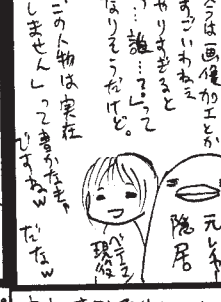 今は画像加工とか
すごいわねぇ
やりすぎると
…誰…る」って
なりそうだけど。
この人物は実在
しません」って書かなきゃ
ですねw
だなw
元レ
隠居
ベテラン
現役